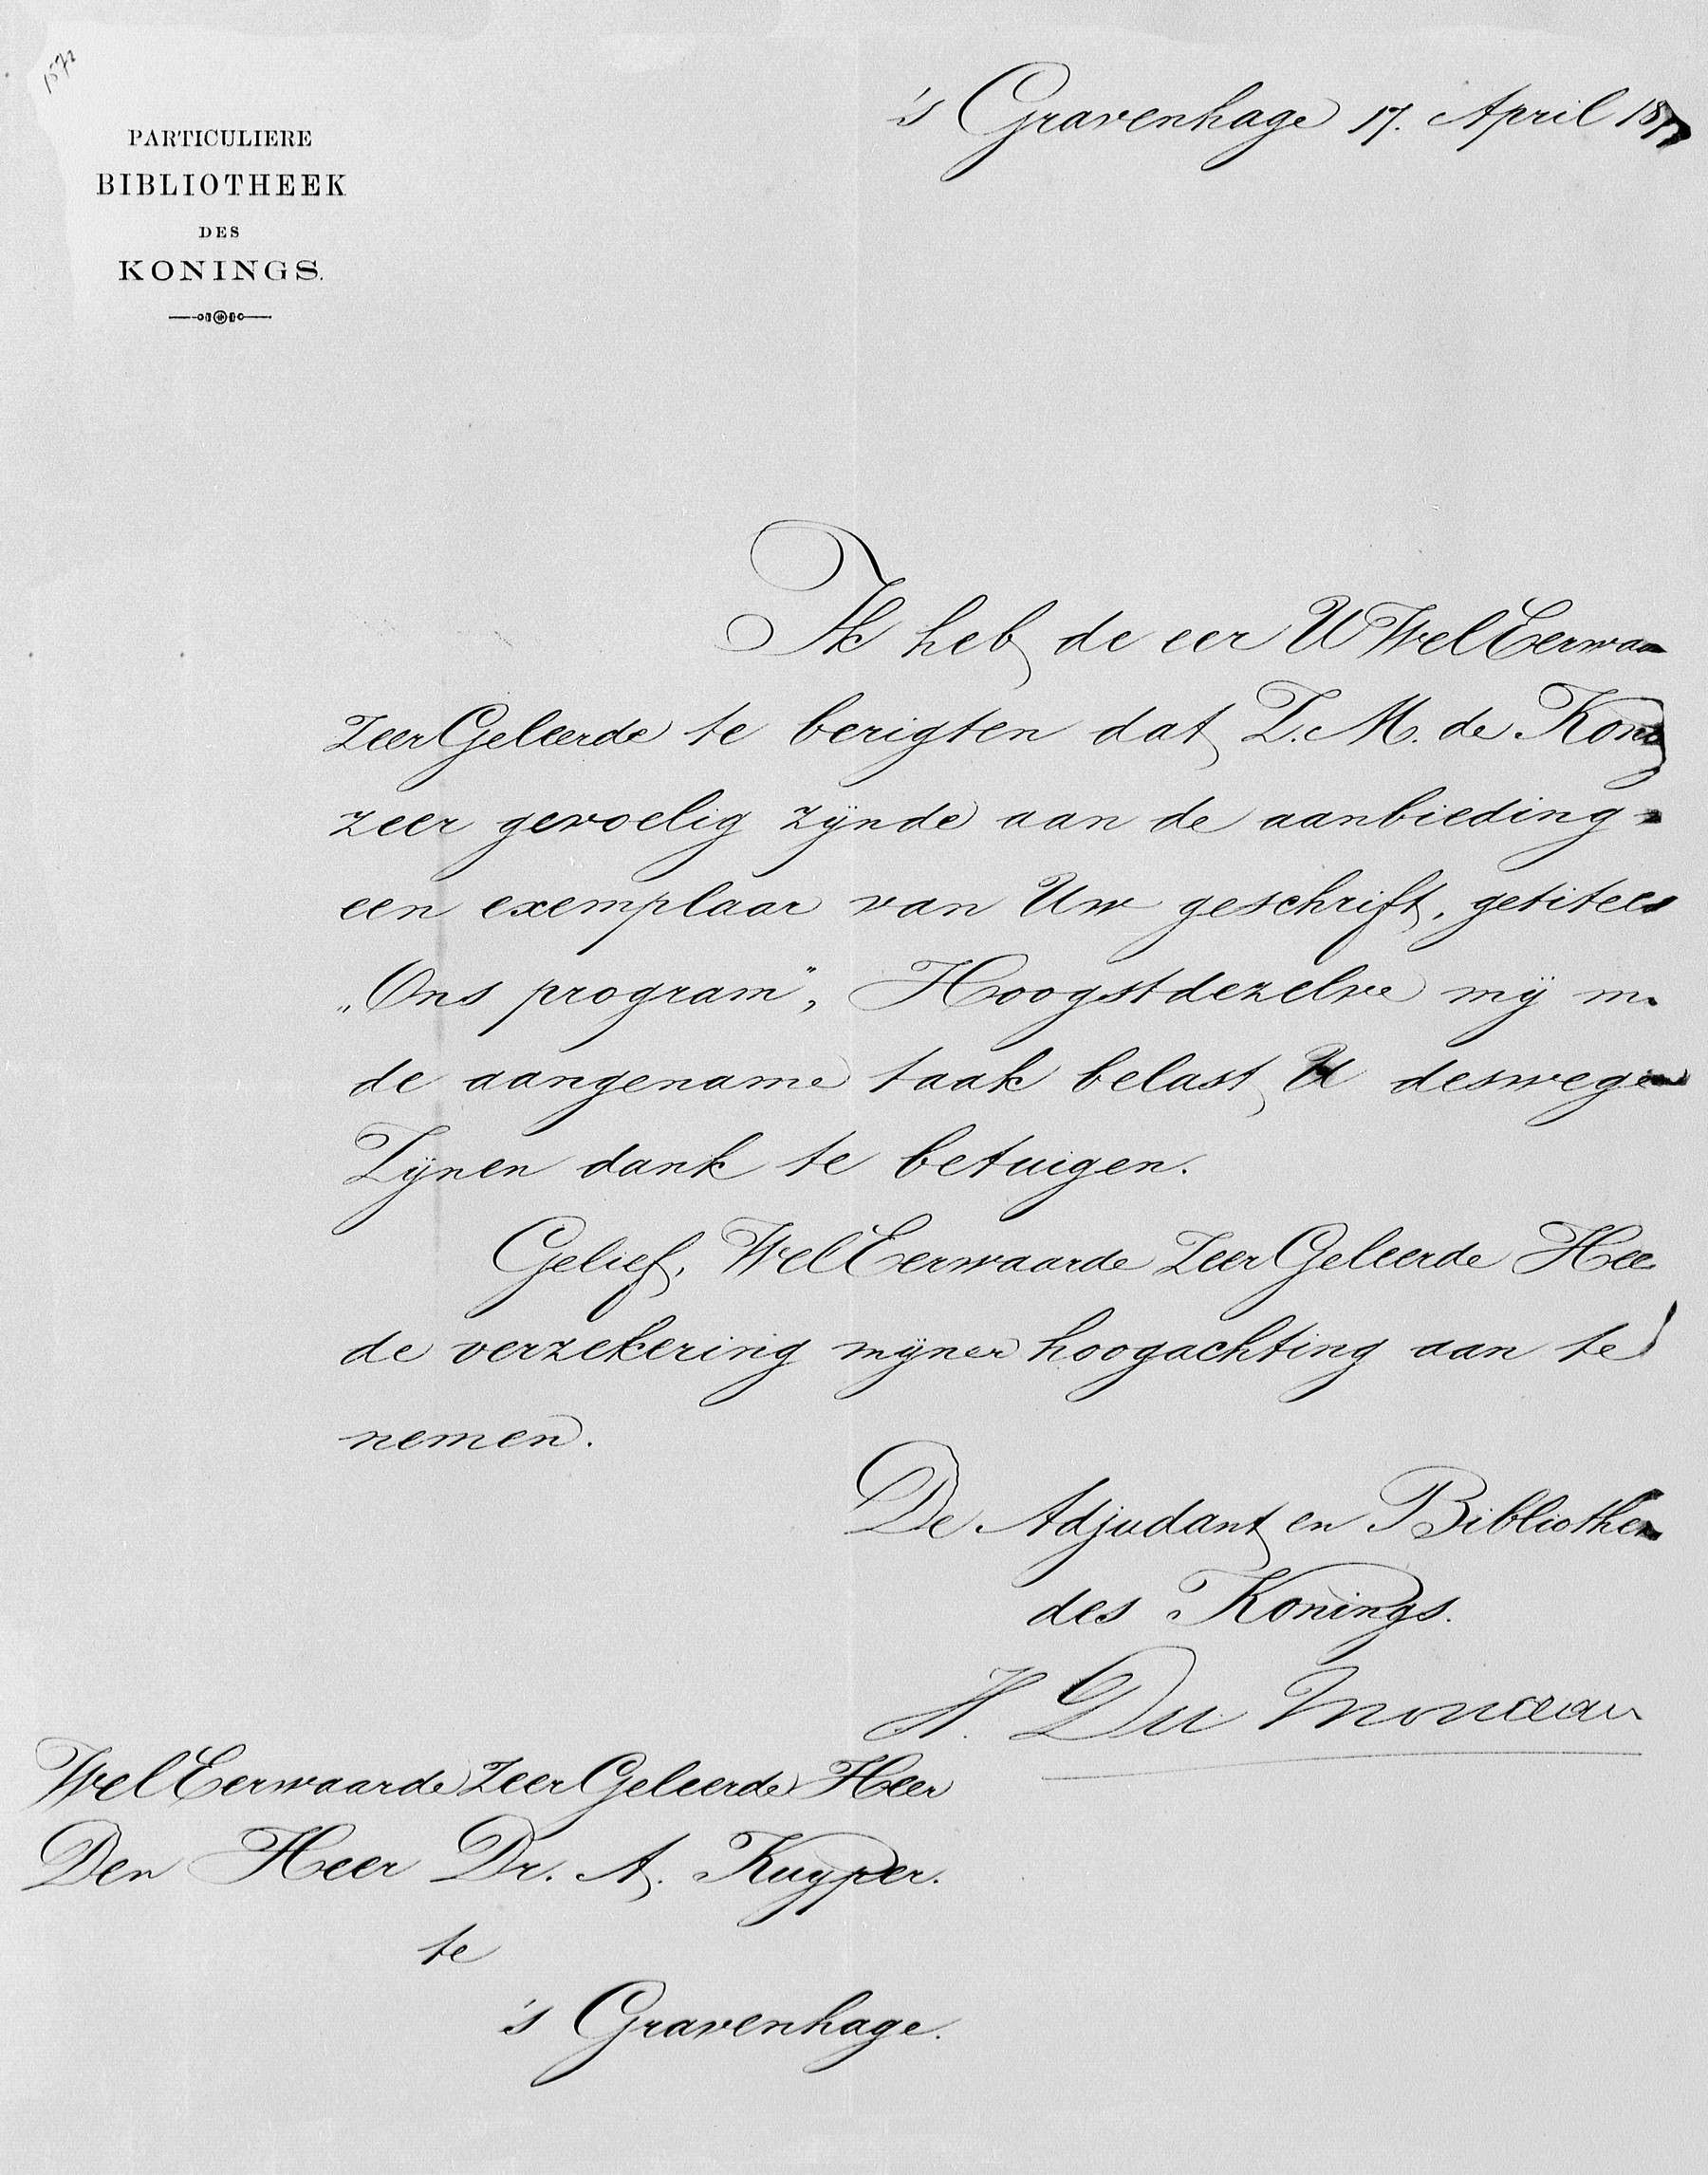 1572
's Gravenhage 17. April 18
PARTICULIERE
BIBLIOTHEEK
DES
KONINGS.
Ik heb de eer UWelEerwaa
ZeerGeleerde te berigten dat Z.M. de Konig
zeer gevoelig zijnde aan de aanbieding
een exemplaar van Uw geschrift, getiteld
„Ons program", Hoogstdezelve mij m
de aangename taak belast U deswegen
Zijnen dank te betuigen.
Gelief, WelEerwaarde ZeerGeleerde Hee
de verzekering mijner hoogachting aan te
nemen.
De Adjudant en Bibliothe
des Konings.
H. Du Monceau
WelEerwaarde ZeerGeleerde Heer
Den Heer Dr. A. Kuyper.
te
's Gravenhage.